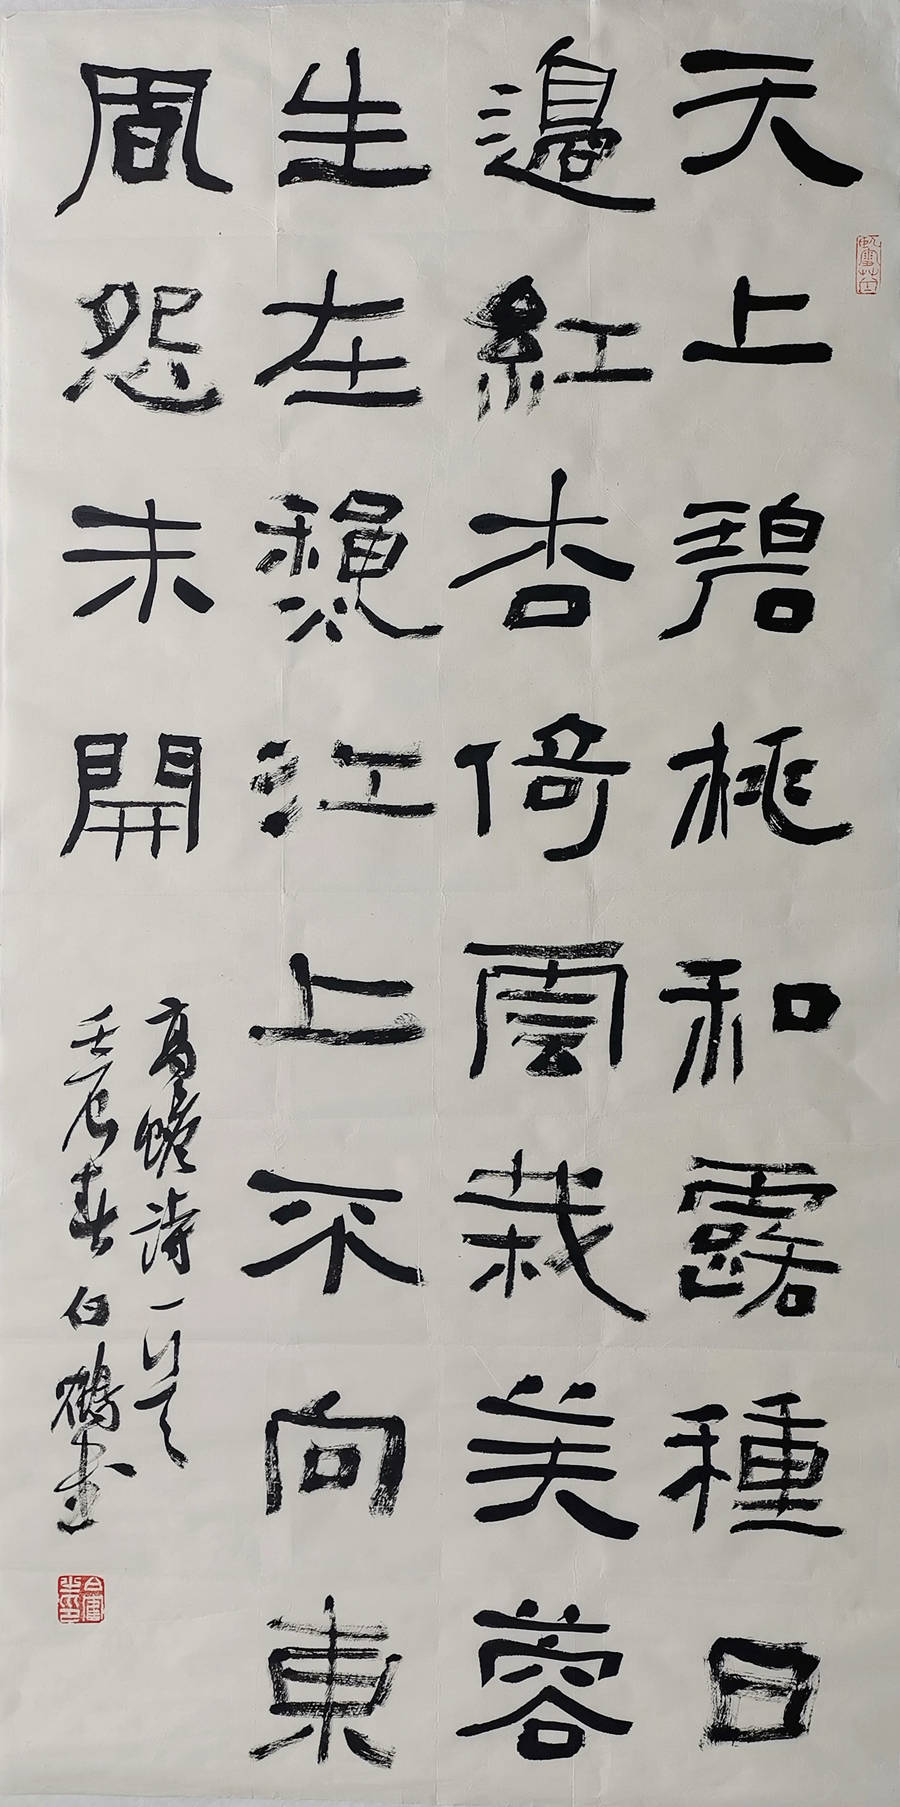 天上碧桃和露種日
邊紅杏倚雲栽芙蓉
生在秋江上不向東
風怨未開
高蟾詩一首
壬辰春白鶴書